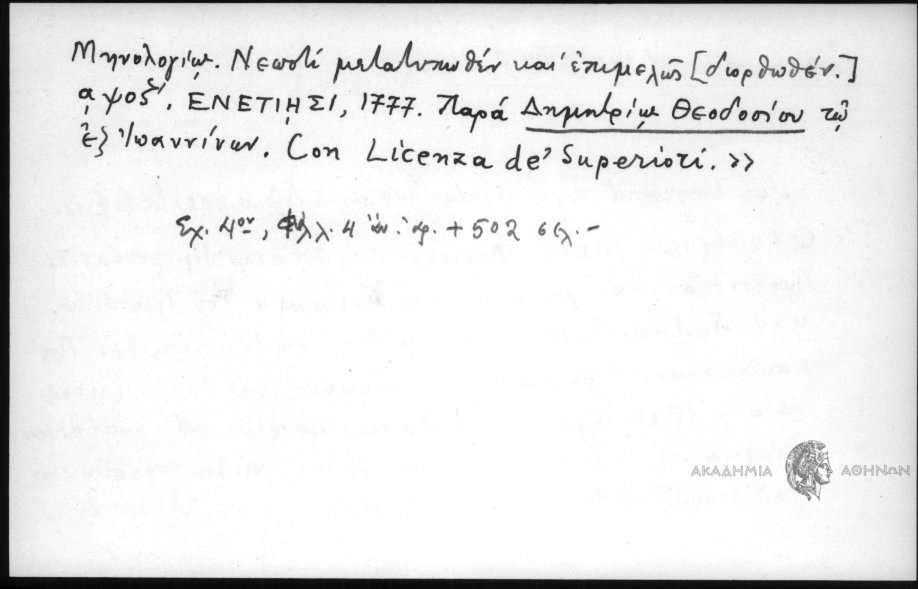 Μηνολογίῳ. Νεωστί μετατυπωθέν καί ἐπιμελῶς [διορθωθέν.]
͵αψοζ', ΕΝΕΤΙῌΣΙ, 1777. Παρά Δημητρίῳ Θεοδοσίου τῷ
ἐξ Ἰωαννίνων. Con Licenza de' Superiori. »
Σχ. 4ον, φύλλ. 4 ἄν. ἀρ. + 502 σελ. -
ΑΚΑΔΗΜΙΑ ΑΘΗΝΩΝ